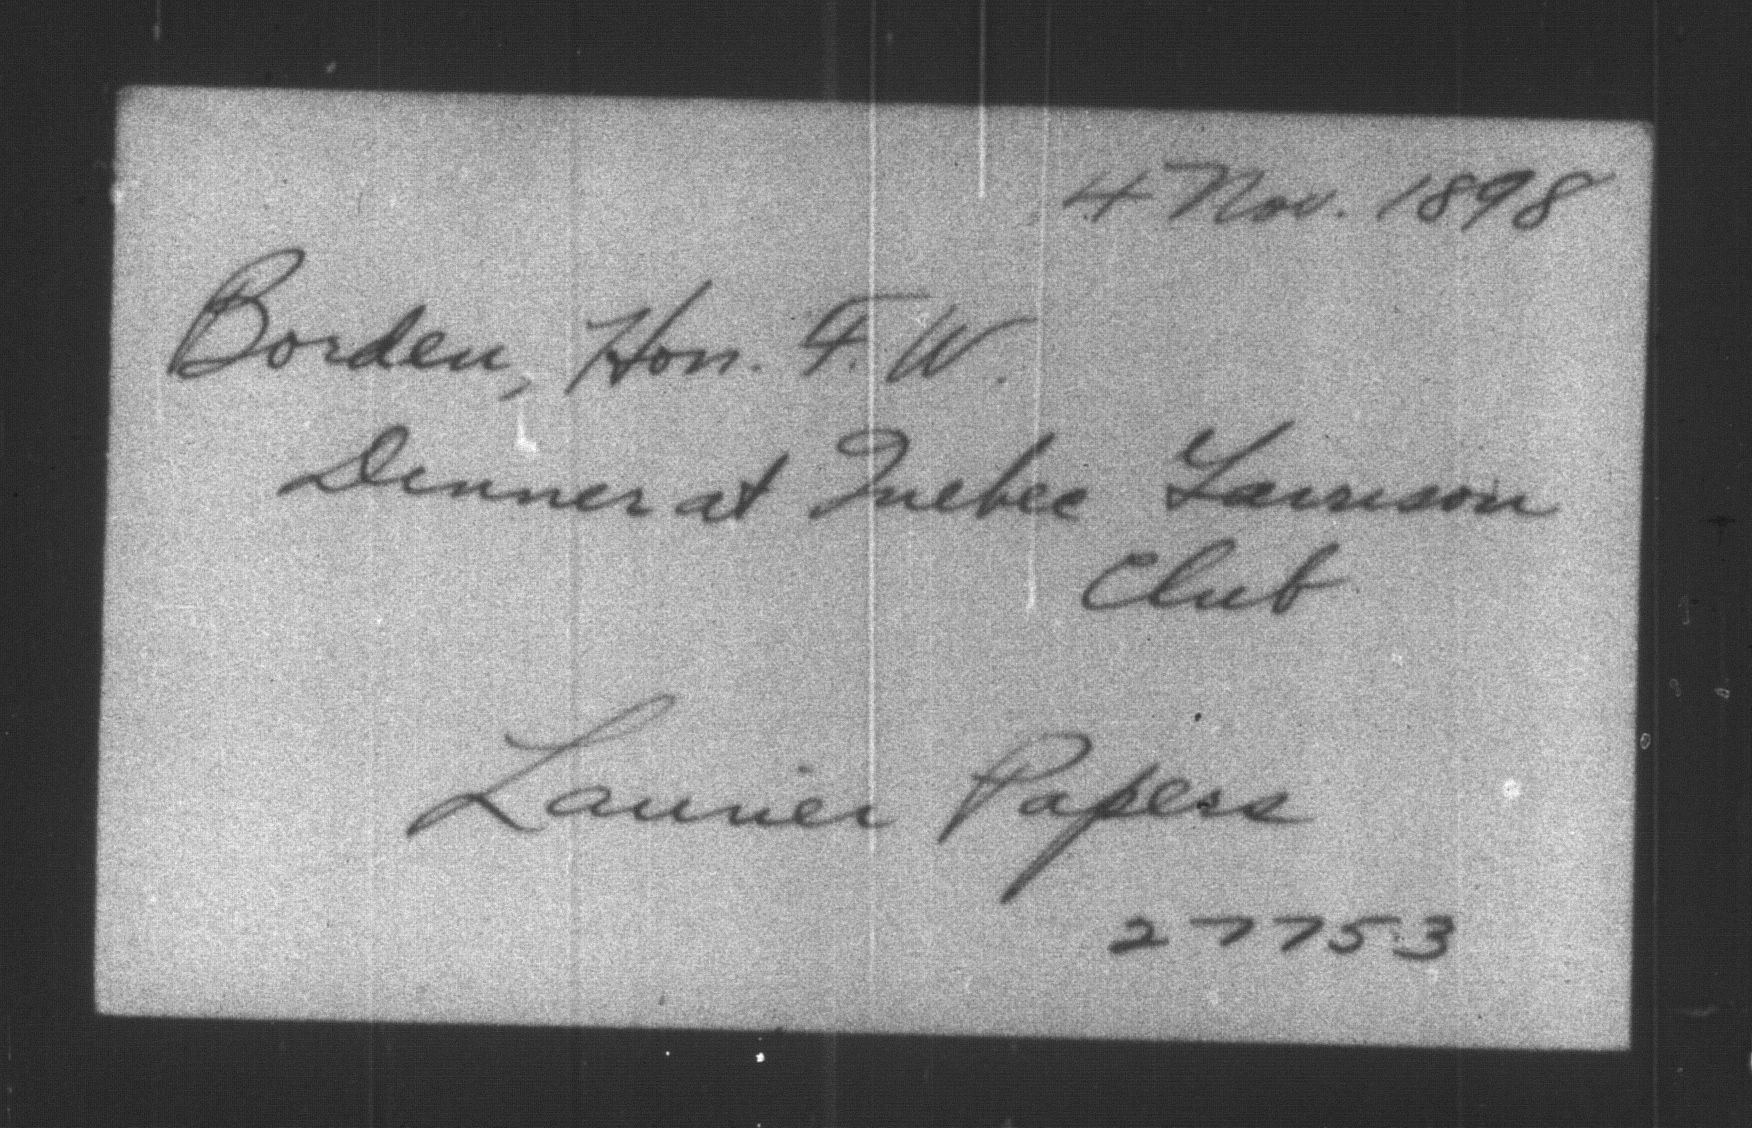 4 Nov. 1898
Borden, Hon. F. W.
Dinner at Quebec Garrison
Club
Laurier Papers
27753